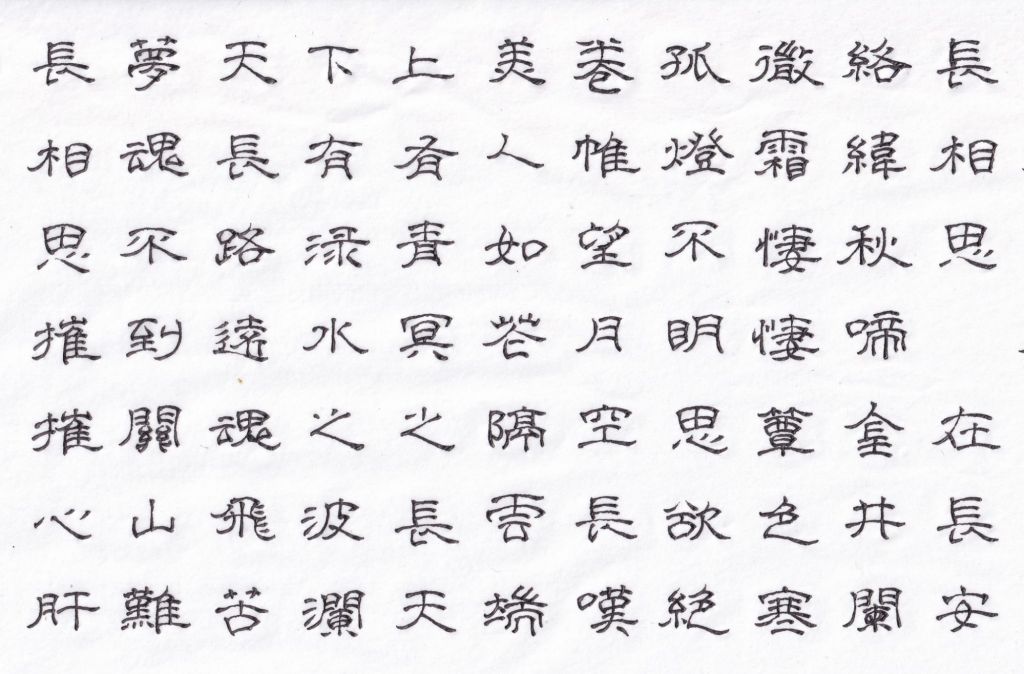 長相思 在長安
絡緯秋啼金井闌
微霜悽悽簟色寒
孤燈不明思欲絕
卷帷望月空長嘆
美人如花隔雲端
上有青冥之長天
下有淥水之波瀾
天長路遠魂飛苦
夢魂不到關山難
長相思摧摧心肝